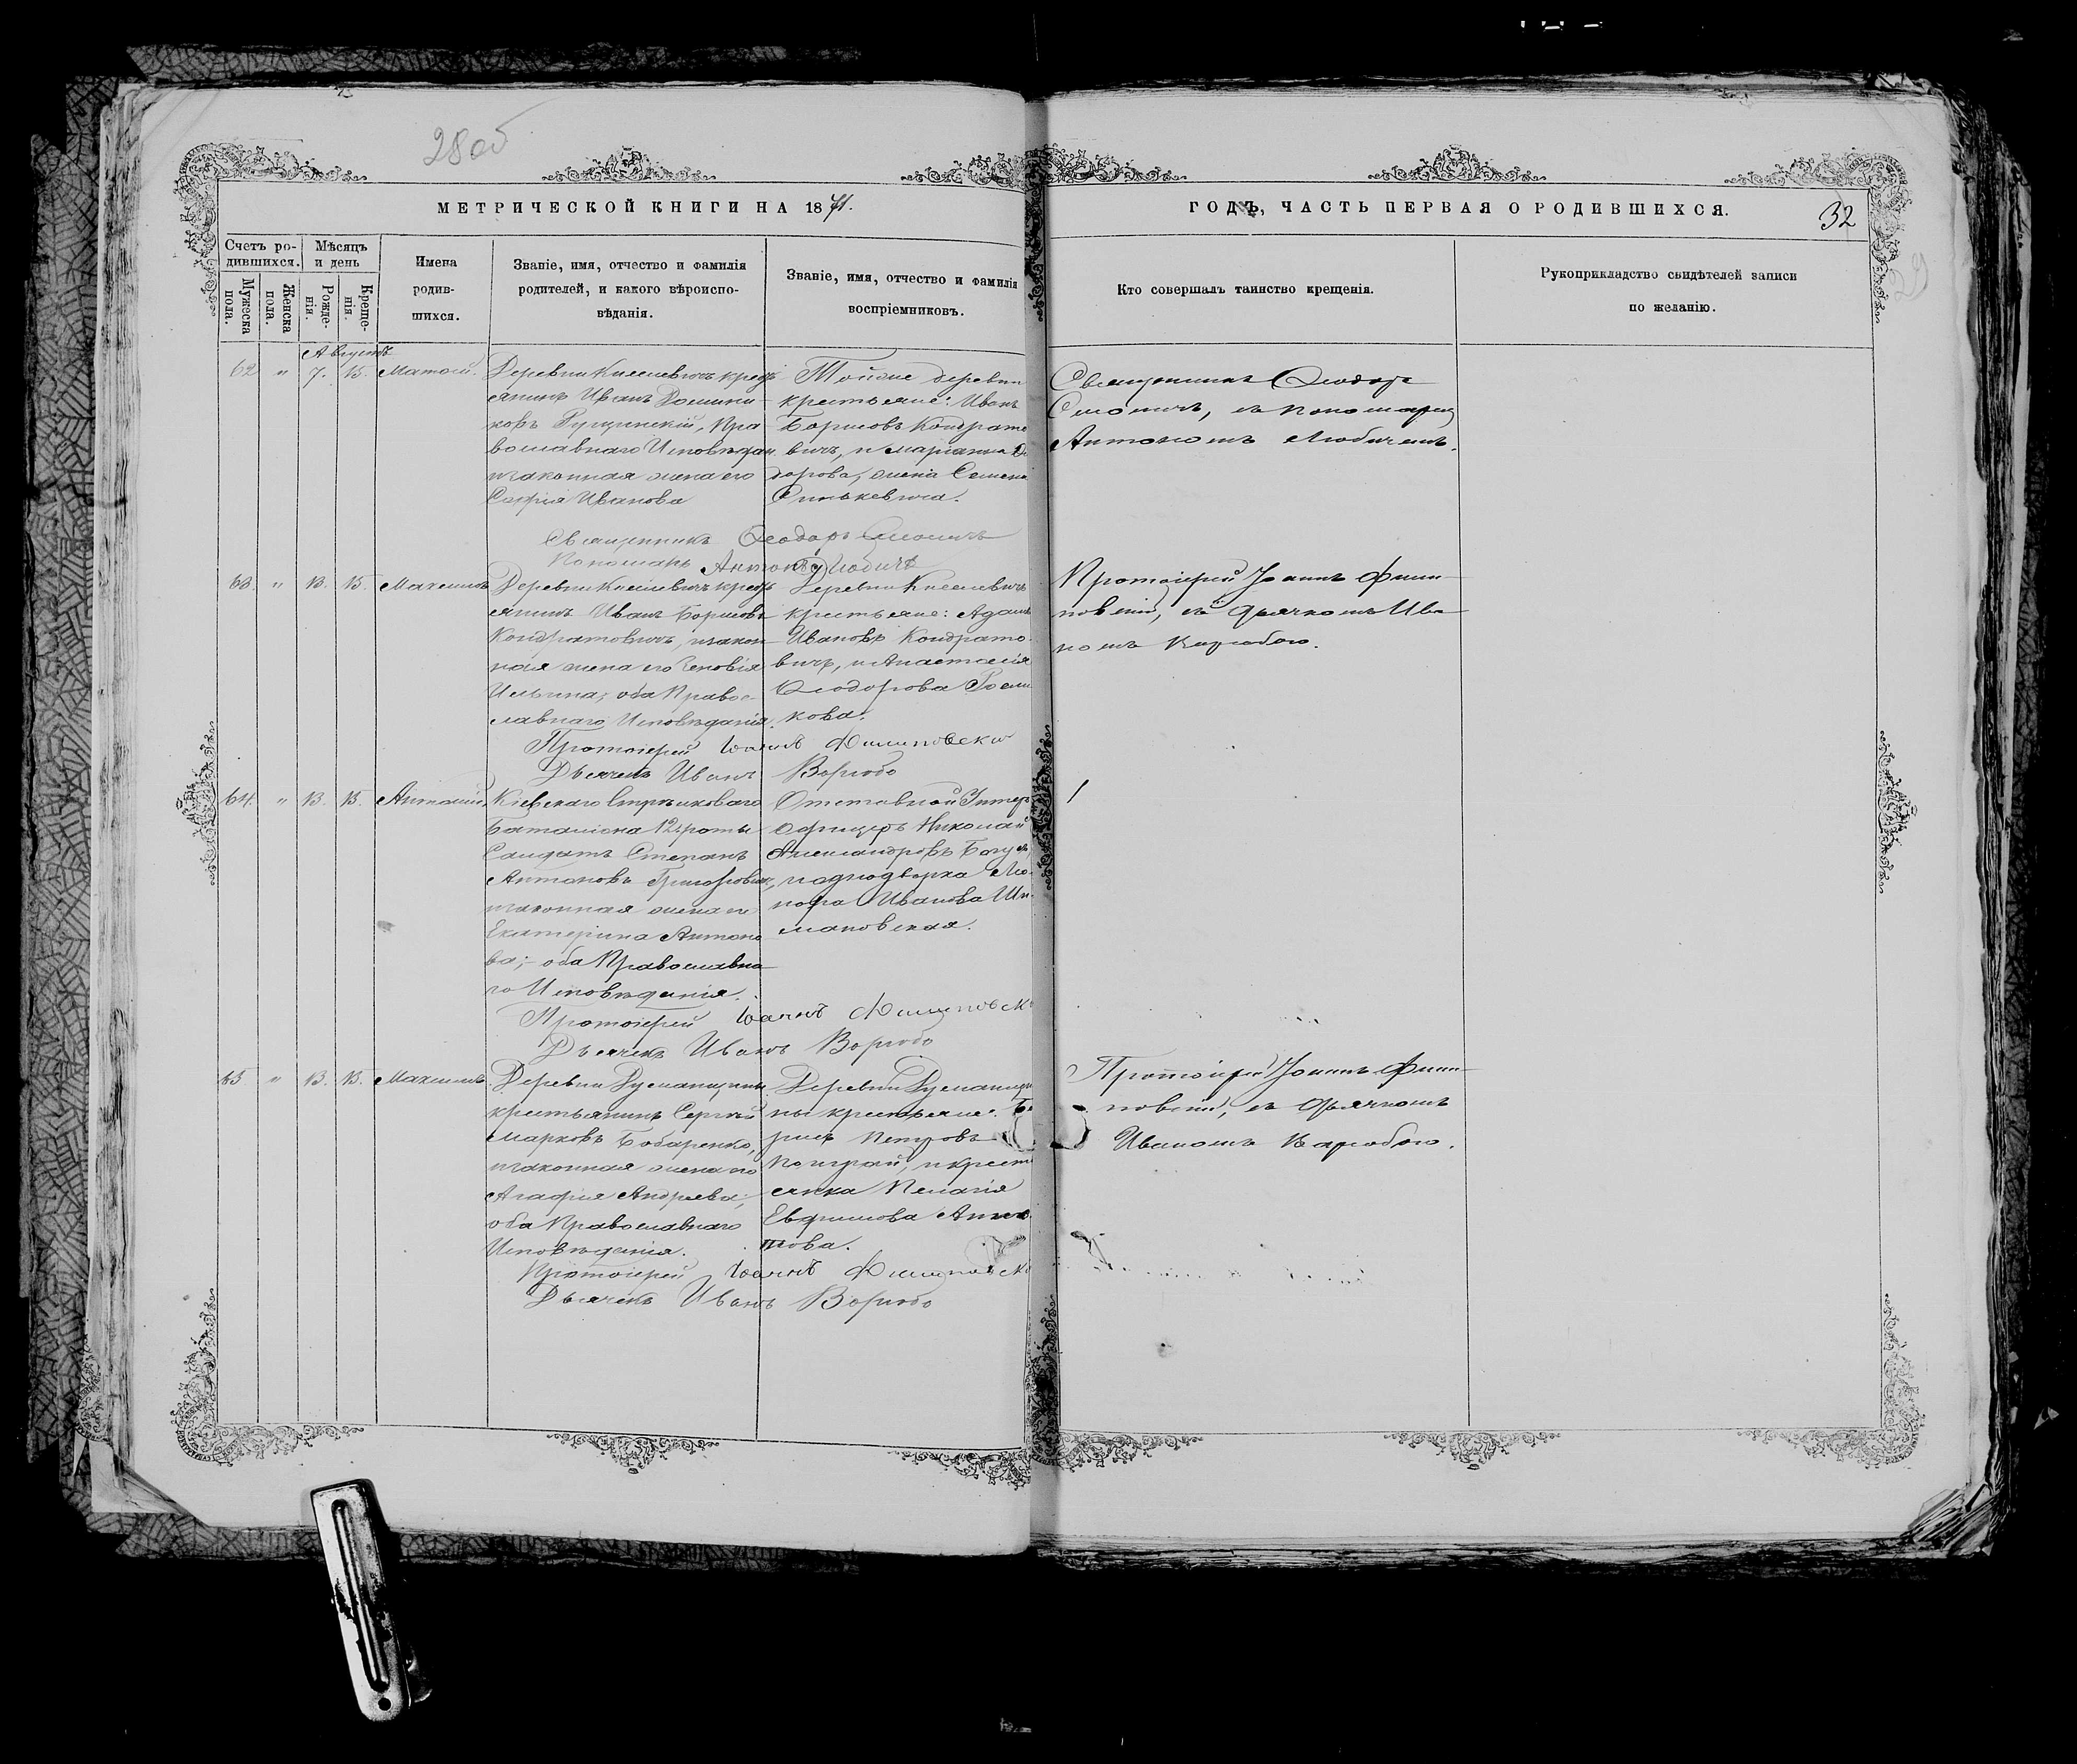 28об
МЕТРИЧЕСКОЙ КНИГИ НА 1871.
ГОДЪ, ЧАСТЬ ПЕРВАЯ О РОДИВШИХСЯ.
32
Счетъ ро-
дившихся.
Мужеска
пола.
Женска
пола.
Мѣсяцъ
и день
Рожде-
нія.
Креще-
нія.
Имена
родив-
шихся.
Званіе, имя, отчество и фамилія
родителей, и какого вѣроиспо-
вѣданія.
Званіе, имя, отчество и фамилія
воспріемниковъ.
Кто совершалъ таинство крещенія.
Рукоприкладство свидѣтелей записи
по желанію.
Августъ
62 " 7. 15.
Деревни Киселевичъ крест
янинъ Иванъ Домини-
ковъ Пра
вославнаго Исповѣдан
и законная жена его
Софія Иванова
Тойже деревни
крестьяне: Иванъ
Борисовъ Кондрато
вичъ, и Маріанна
дорова, жена Семена
Синькевича.
Священникъ Ѳеодоръ
Симоничъ, съ пономаремъ
Антономъ Любичемъ.
Священникъ Ѳеодоръ Симоничъ
Пономарь Антонъ Любичъ
63. " 13. 15. Максимъ
Деревни Киселевичъ крест
янинъ Иванъ Борисовъ
Кондратовичъ, и закон
ная жена его Зеновія
Ильина; оба Право-
славнаго Исповѣданія.
Деревни Киселевичъ
крестьяне: Адамъ
Ивановъ Кондрато-
вичъ, и Анастасія
Ѳеодорова
кова.
Протоіерей Іоаннъ Фили-
повскій, съ дьячкомъ Ива
номъ Варгобою.
Протоіерей Іоаннъ Филиповски
Дьячекъ Иванъ Варгобо
64. " 13. 15. Антоній.
Кіевскаго Стрѣлковаго
Баталіона 12 роты
Солдатъ Степанъ
Антоновъ Григоровичъ,
и законная жена его
Екатерина Антоно
ва; - оба Православна
го Исповѣданія.
Отставной Унтеръ
Офицеръ Николай
Александровъ
Иванова Ши-
мановская.
Протоіерей Іоаннъ Филиповск
Дьячекъ Иванъ Варгобо
65 " 13. 15. Максимъ.
Деревни Думанщины
крестьянинъ Сергѣй
Марковъ Бобаренко,
и законная жена его
Агафія Андреева;
оба Православнаго
Исповѣданія.
Деревни Думанщи
ны крестьяне: Бо
рисъ Петровъ
и крест
янка Пелагія
Евфимова
нова.
Протоіерей Іоаннъ Фили-
повскій, съ дьячкомъ
Иваномъ Варгобою.
Протоіерей Іоаннъ Филиповск
Дьячекъ Иванъ Варгобо